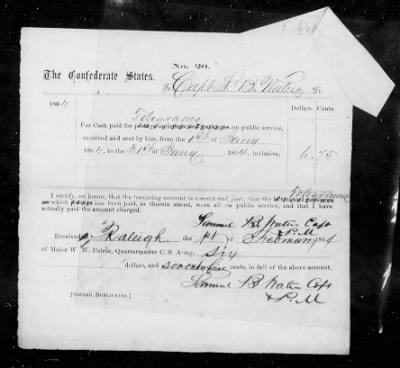 No. 20.
The Confederate States.
To Capt. S. B. Waters Dr.
Dollars. Cents
1864
Telegrams
For Cash paid for on public service,
received and sent by him, from the 1st of Jany
1864 to the 31st of Jany 1864, inclusive, 6. 75
I certify, on honor, that the foregoing account is correct and just; that the Telegrams
on which has been paid, as therein stated, were all on public service, and that I have
actually paid the amount charged.
Samuel B. Waters Capt
& P. M
Received at Raleigh the 1st of February 1864
of Major W. W. Peirce, Quartermaster C. S. Army, Six
dollars, and seventy five cents, in full of the above account.
Samuel B Waters Capt
& P. M
[SIGNED DUPLICATES.]